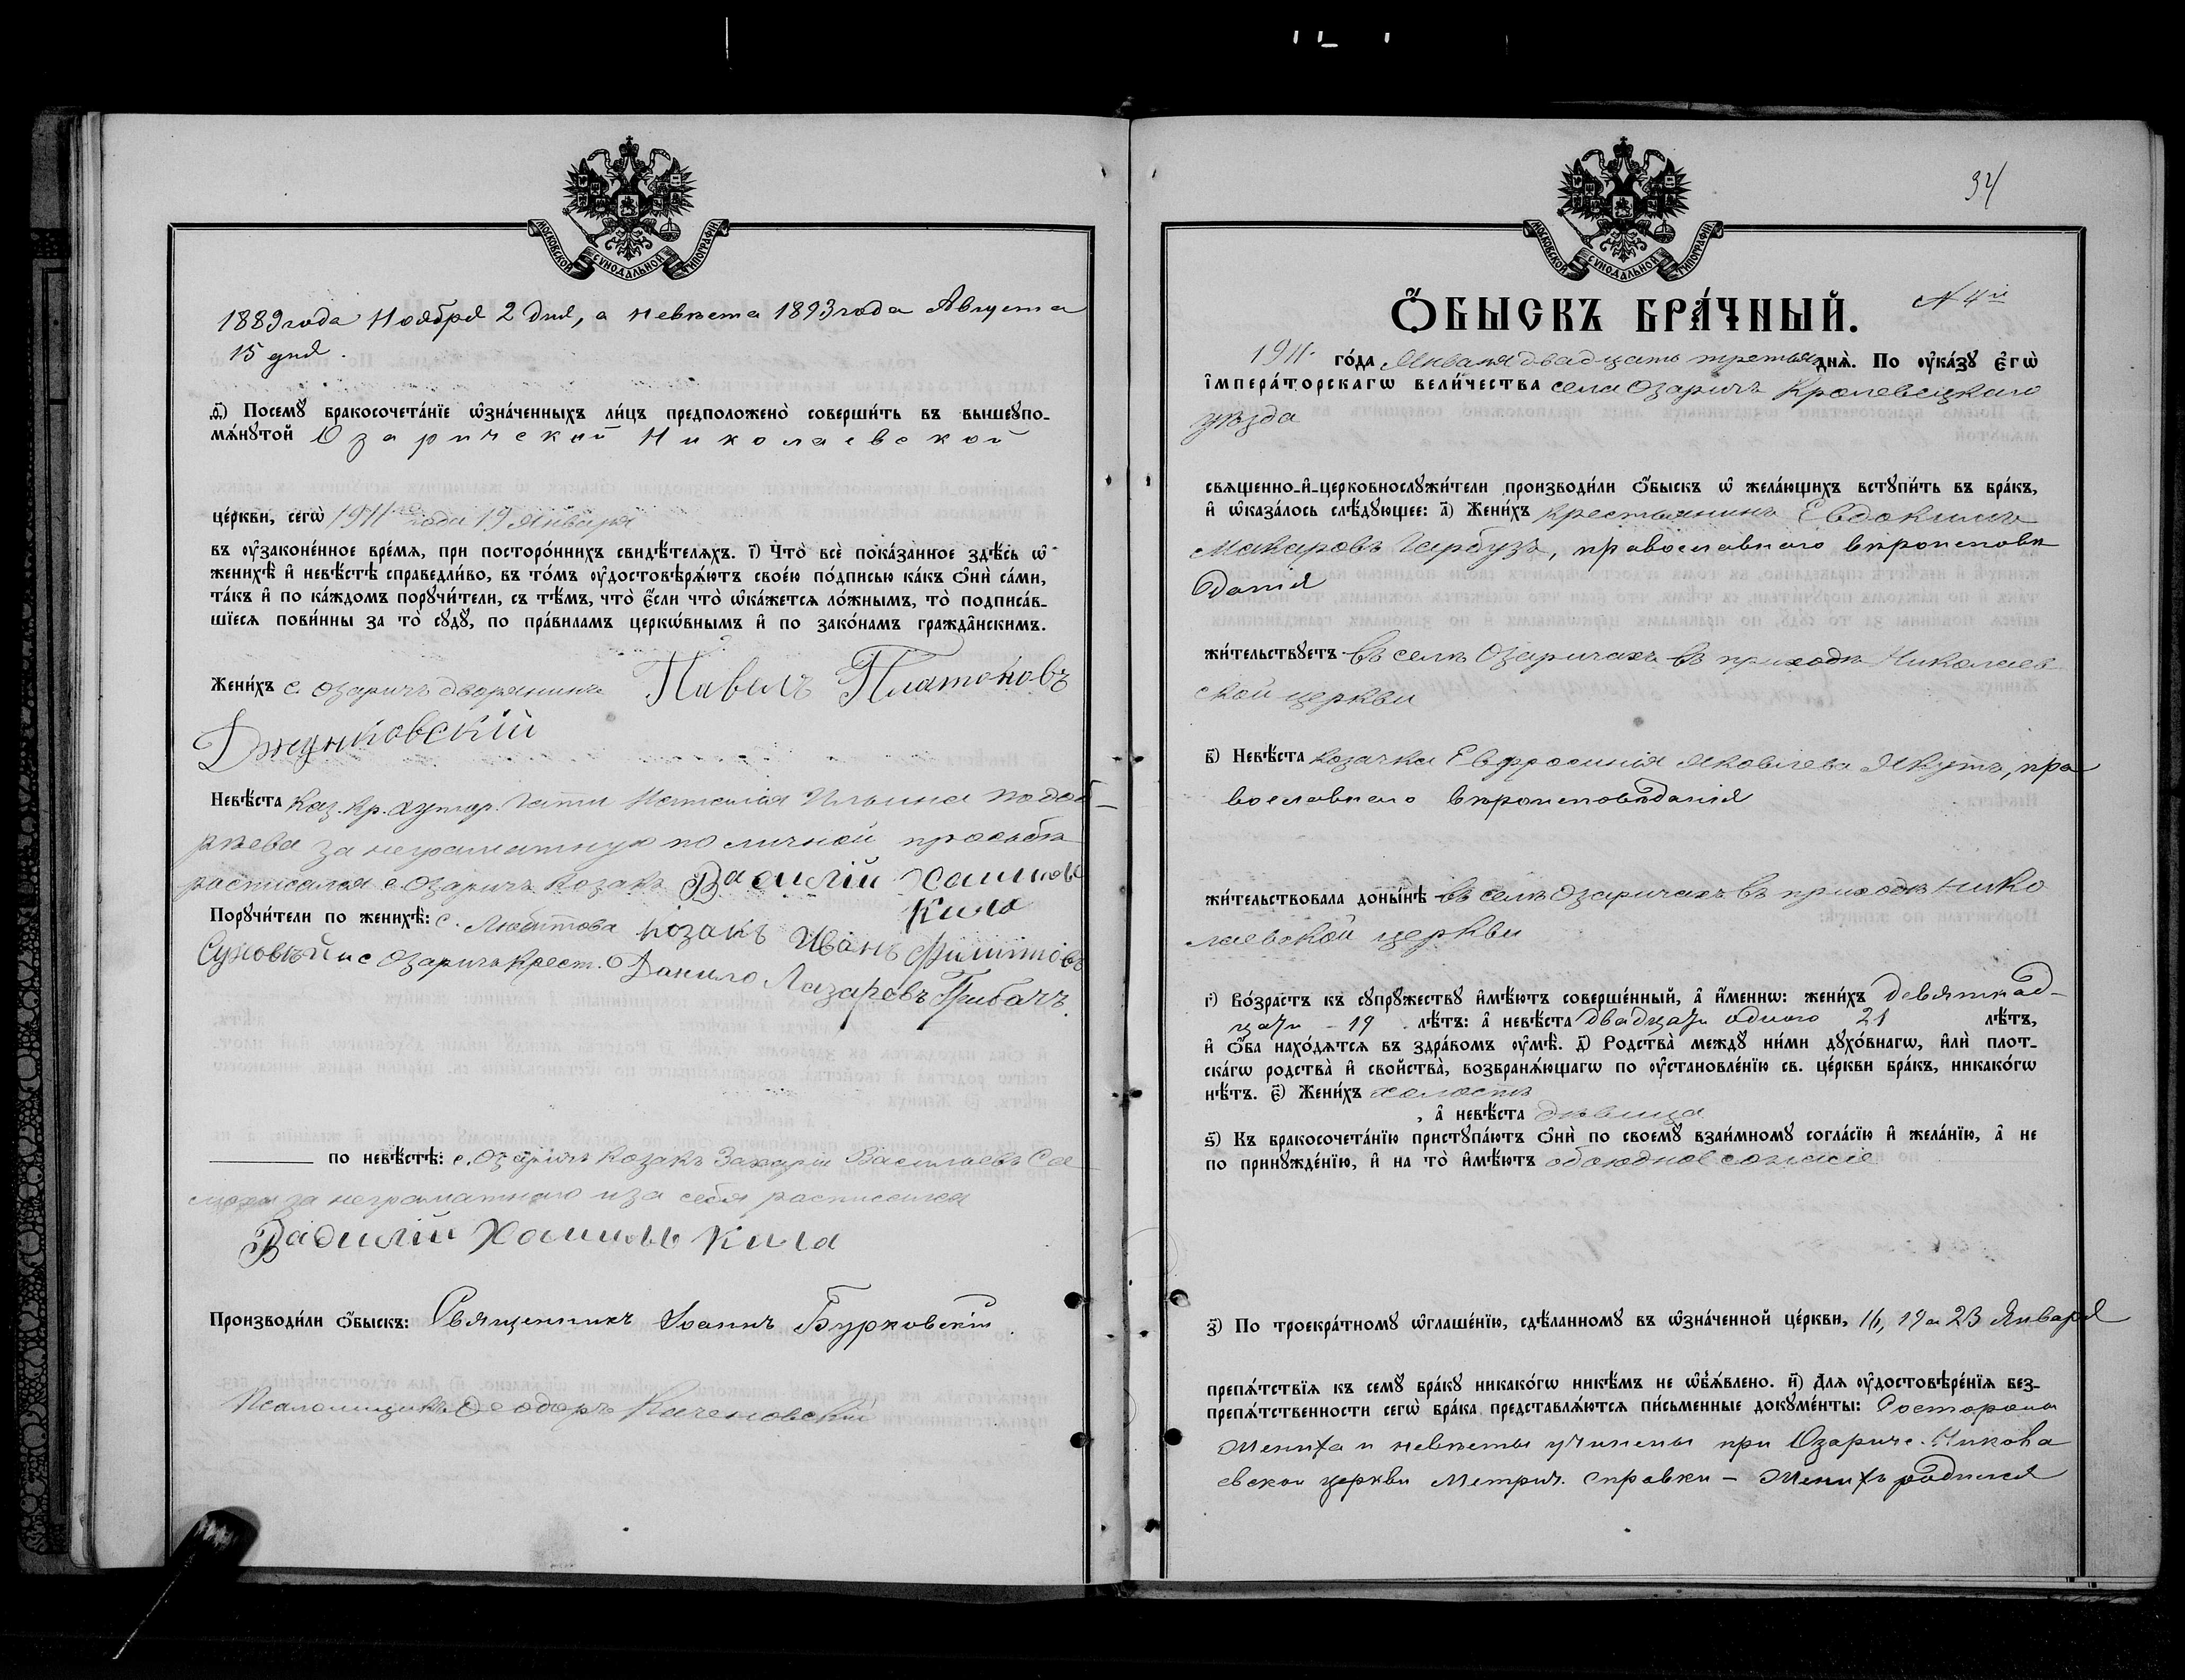 МОСКОВСКОЙ СУНОДАЛЬНОЙ ТИПОГРАФІИ
1889 года Ноября 2 дня, а невѣста 1893 года Августа
15 дня.
д҃) Посемꙋ̀ бракосочета́нїе ѡ҆зна́ченныхъ ли́цъ предположено̀ соверши́ть въ вышеꙋпо-
мѧ́нꙋтой Озаричской Николаевской
це́ркви, сегѡ̀ 1911го года 19 Января
въ ᲂу҆зако́не́нное вре́мѧ, при посторо́ннихъ свидѣ́телѧхъ. і҃) Что̀ всѐ пока́занное здѣ́сь ѡ҆
женихѣ̀ и҆ невѣ́стѣ справедли́во, въ то́мъ ᲂу҆достовѣрѧ́ютъ свое́ю по́дписью ка́къ ѻ҆нѝ са́ми,
та́къ и҆ по ка́ждомъ порꙋчи́тели, съ тѣ́мъ, что̀ є҆́сли что̀ ѡ҆ка́жетсѧ ло́жнымъ, то̀ подписа́в-
шїесѧ пови́нны за то̀ сꙋдꙋ̀, по пра́виламъ церкѡ́внымъ и҆ по зако́намъ гражда̑нскимъ.
Жени́хъ с. Озаричъ дворянинъ Павелъ Платоновъ
Джунковскій
Невѣ́ста Каз. Кр. хутор. Гати Наталія Ильина Подоб-
рѣева за неграматную по личной просьбѣ
росписался с. Озаричъ козакъ Василій Хомиковъ
Кила
Порꙋчи́тели по женихѣ̀: с. Любитова козакъ Иванъ Филиповъ
Суховѣй и с Озаричъ Крест. Данило Лазаровъ Грибачъ.
по невѣ́стѣ: с. Озаричъ козакъ Захарій Васильевъ
за неграматного и за себя росписался
Василій Хомиковъ Кила
Производи́ли ѻ҆́быскъ: Священникъ Іоаннъ Бурковскій.
Псаломщикъ Ѳеодоръ Каченовскій
94
МОСКОВСКОЙ СУНОДАЛЬНОЙ ТИПОГРАФІИ
Ѻ҆́БЫСКЪ БРА́ЧНЫЙ. № 4й
1911 го́да Января двадцать третья днѧ̀. По ᲂу҆ка́зꙋ є҆гѡ̀
і҆мпера́торскагѡ вели́чества села Озаричъ Кролевецкаго
уѣзда
свѧщенно-и҆-церковнослꙋжи́тели производи́ли ѻ҆́быскъ ѡ҆ жела́ющихъ встꙋпи́ть въ бра́къ,
и҆ ѡ҆каза́лось слѣ́дꙋющее: а҃) Жени́хъ крестьянинъ Евдокимъ
Макаровъ Гарбузъ, православнаго вѣроисповѣ
данія
жи́тельствꙋетъ въ селѣ Озаричахъ въ приходѣ Николаев
ской церкви
в҃) Невѣ́ста козачка Евфросинія Яковлева Якутъ, пра
вославнаго вѣроисповѣданія
жи́тельствовала доны́нѣ въ селѣ Озаричахъ въ приходѣ Нико
лаевской церкви
г҃) Во́зрастъ къ сꙋпрꙋ́жествꙋ и҆мѣ́ютъ соверше́нный, а҆ и҆́меннѡ: жени́хъ девятнад-
цати - 19 лѣ́тъ: а҆ невѣ́ста двадцати одного 21 лѣ́тъ,
и҆ ѻ҆́ба нахо́дѧтсѧ въ здра́вомъ ᲂу҆мѣ̀. д҃) Родства̀ междꙋ ни́ми дꙋхо́внагѡ, и҆лѝ плот-
ска́гѡ родства̀ и҆ сво́йства̀, возбранѧ́ющагѡ по ᲂу҆становле́нїю св. це́ркви бра́къ, никако́гѡ
нѣ́тъ. є҃) Жени́хъ холостъ
, а҆ невѣ́ста дѣвица
ѕ҃) Къ бракосочета́нїю пристꙋпа́ютъ ѻ҆нѝ по своемꙋ̀ взаи́мномꙋ согла́сїю и҆ жела́нїю, а҆ не
по принꙋжде́нїю, и҆ на то̀ и҆мѣ́ютъ обоюдное согласіе
з҃) По троекра́тномꙋ ѡ҆глаше́нїю, сдѣ́ланномꙋ въ ѡ҆зна́ченной це́ркви, 16, 19 и 23 Января
препѧ́тствїѧ къ семꙋ̀ бра́кꙋ никако́гѡ никѣ́мъ не ѡ҆б̾ѧ́влено. и҃) Длѧ ᲂу҆достовѣре́нїѧ без-
препѧ́тственности сегѡ̀ бра́ка представлѧ́ютсѧ пи́сьменные докꙋме́нты: Состороны
жениха и невѣсты учинены при Озарич. Никола
евской церкви Метрич. справки – Женихъ родился